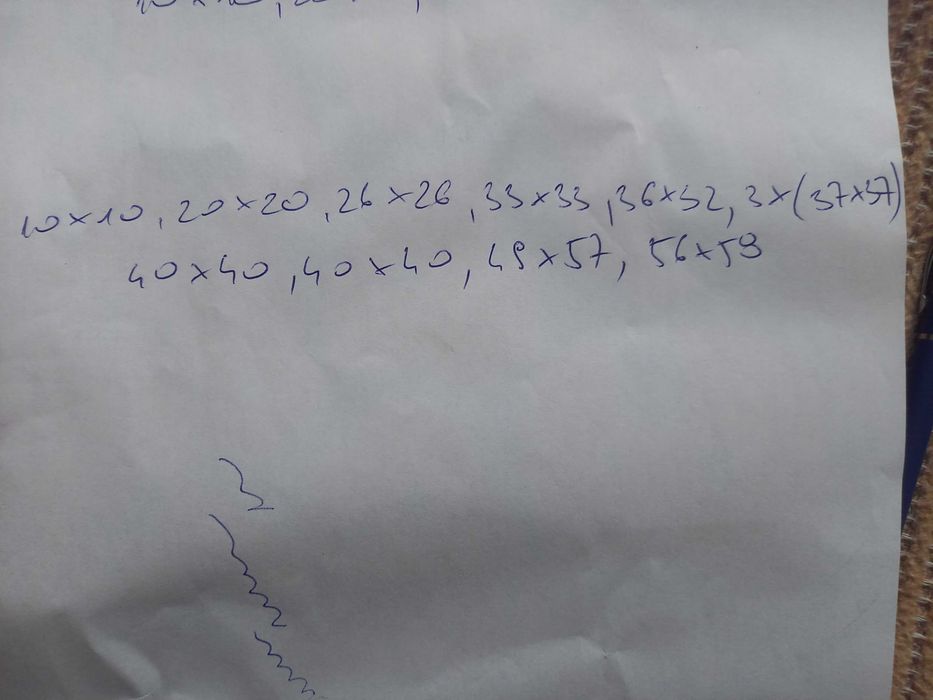 10×10, 20×20, 26×26, 33×33, 36×52, 3×(37×37)
40×40, 40×40, 49×57, 56×59